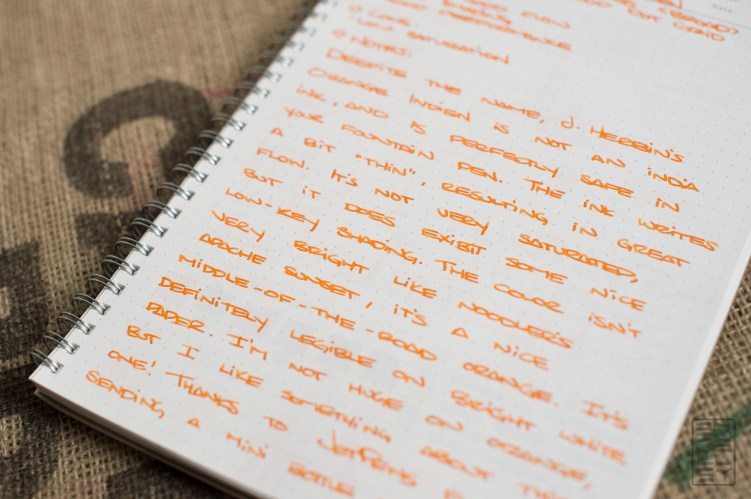 GOOD FLOW
SHADING
GOOD PERFORMANCE
CONS:
LOW SATURATION
NOTES:
DESPITE THE NAME, J. HERBIN'S
ORANGE INDIEN IS NOT AN INDIA
INK, AND IS PERFECTLY SAFE IN
YOUR FOUNTAIN PEN. THE INK WRITES
A BIT "THIN", RESULTING IN GREAT
FLOW. IT'S NOT VERY SATURATED,
BUT IT DOES EXIBIT SOME NICE
LOW-KEY SHADING. THE COLOR ISN'T
VERY BRIGHT LIKE NOODLER'S
APACHE SUNSET, IT'S A NICE
MIDDLE-OF-THE-ROAD ORANGE. IT'S
DEFINITELY LEGIBLE ON BRIGHT WHITE
PAPER. I'M NOT HUGE ON ORANGE,
BUT I LIKE SOMETHING ABOUT THIS
ONE! THANKS TO JETPENS
SENDING A MINI BOTTLE